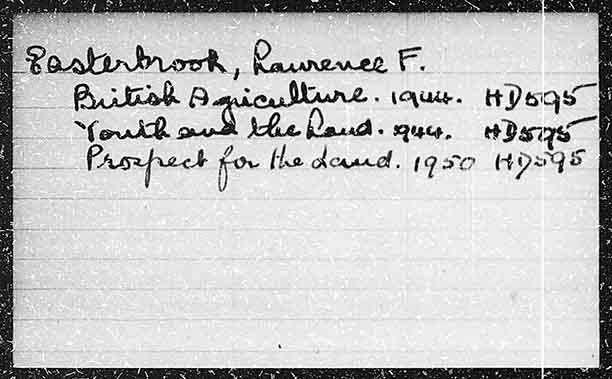 Easterbrook, Laurence F.
British Agriculture. 1944. HD595
Youth and the Land. 944. HD595
Prospect for the Land. 1950 HD595